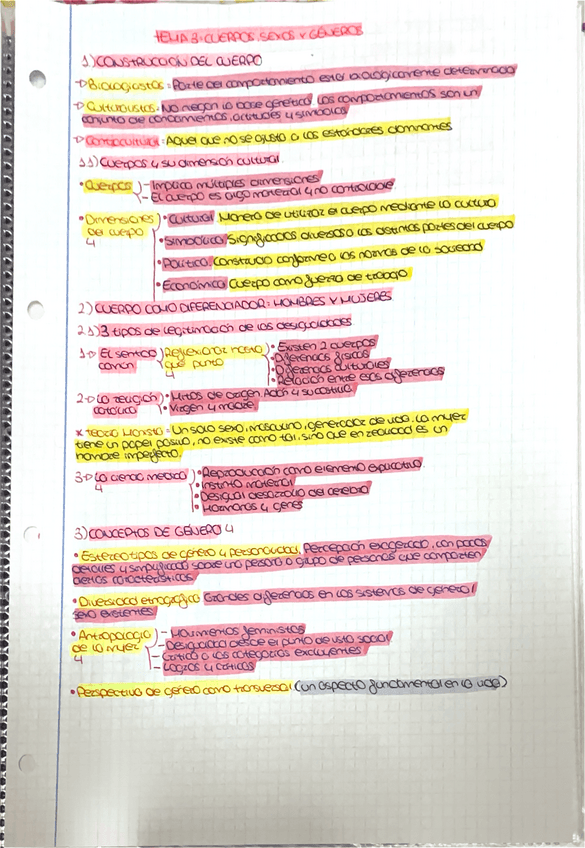 TEMA 3: CUERPOS, SEXOS Y GÉNEROS
1) CONSTRUCCIÓN DEL CUERPO
→ Biologicistas: Parte del comportamiento está biológicamente determinado
→ Culturalistas: No niegan la base genética. Los comportamientos son un
conjunto de conocimientos, actitudes y símbolos
→ Contracultural: Aquel que no se ajusta a los estándares dominantes
1.1) Cuerpos y su dimensión cultural
• Cuerpos - Implica múltiples dimensiones
- El cuerpo es algo material y no controlable
• Dimensiones • Cultural: Manera de utilizar el cuerpo mediante la cultura
del cuerpo • Simbólica: Significados diversos a las distintas partes del cuerpo
4 • Política: Construido conforme a las normas de la sociedad
• Económica: Cuerpo como fuerza de trabajo
2) CUERPO COMO DIFERENCIADOR: HOMBRES Y MUJERES
2.1) 3 tipos de legitimación de las desigualdades
1→ El sentido común Reflexionar hasta que punto 4 • Existen 2 cuerpos
• Diferencias físicas
• Diferencias culturales
• Relación entre esas diferencias
2→ La religión • Mitos de origen Adán y su costilla
católica • Virgen y madre
* Teoría Monista: Un solo sexo, masculino, generador de vida. La mujer
tiene un papel pasivo, no existe como tal, sino que en realidad es un
hombre imperfecto.
3→ La ciencia médica • Reproducción como elemento explicativo
4 • Instinto maternal
• Desigual desarrollo del cerebro
• Hormonas y genes
3) CONCEPTOS DE GÉNERO 4
• Estereotipos de género y personalidad: Percepción exagerada, con pocos
detalles y simplificada sobre una persona o grupo de personas que comparten
ciertas características.
• Diversidad etnográfica: Grandes diferencias en los sistemas de género/
sexo existentes
• Antropología - Movimientos feministas
de la mujer - Desigualdad desde el punto de vista social
4 - Crítica a las categorías excluyentes
- Logros y críticas
• Perspectiva de género como transversal (un aspecto fundamental en la vida)